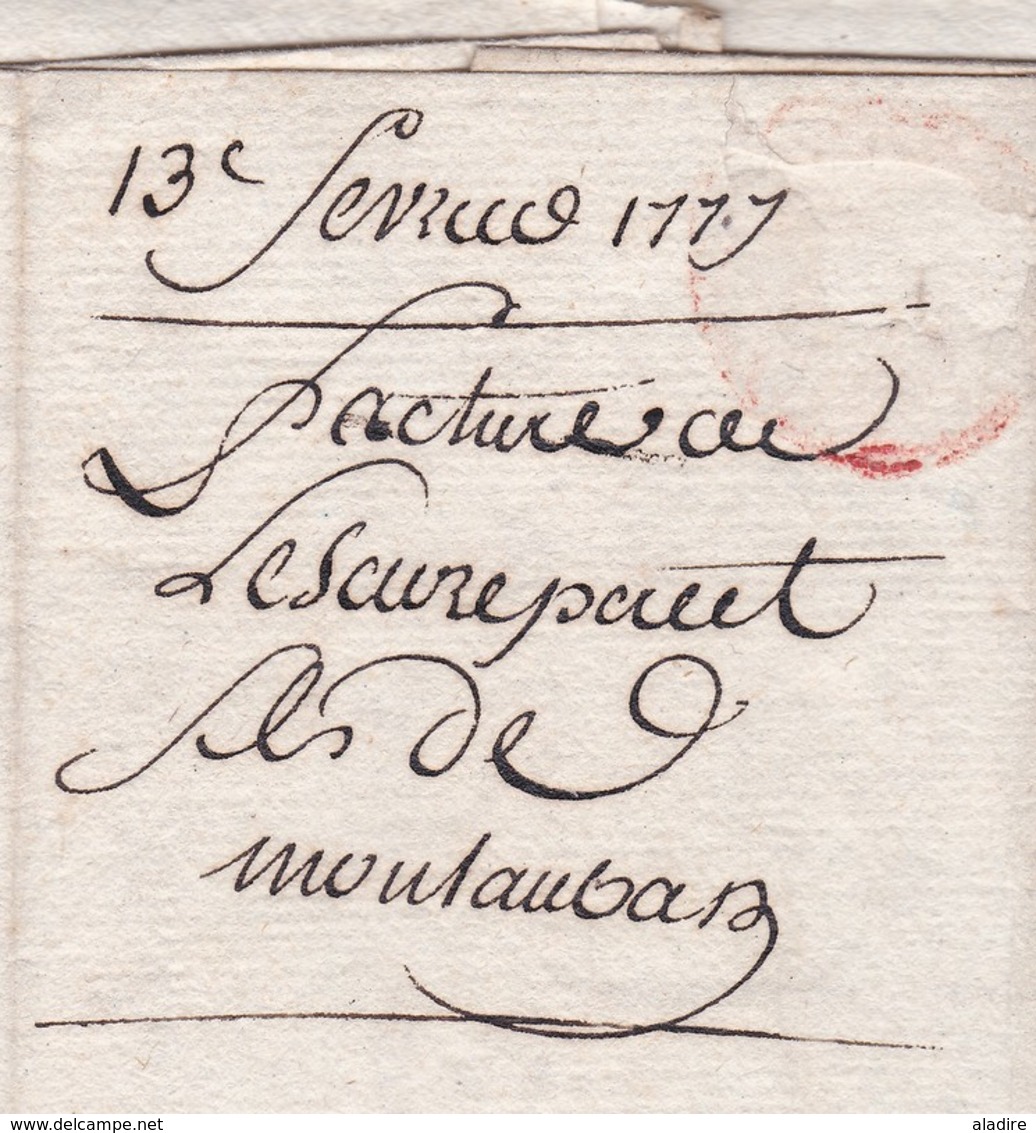 13e fevrier 1777
facture de
Lesaure pere et
fils de
montauban
delcampe.net
aladire